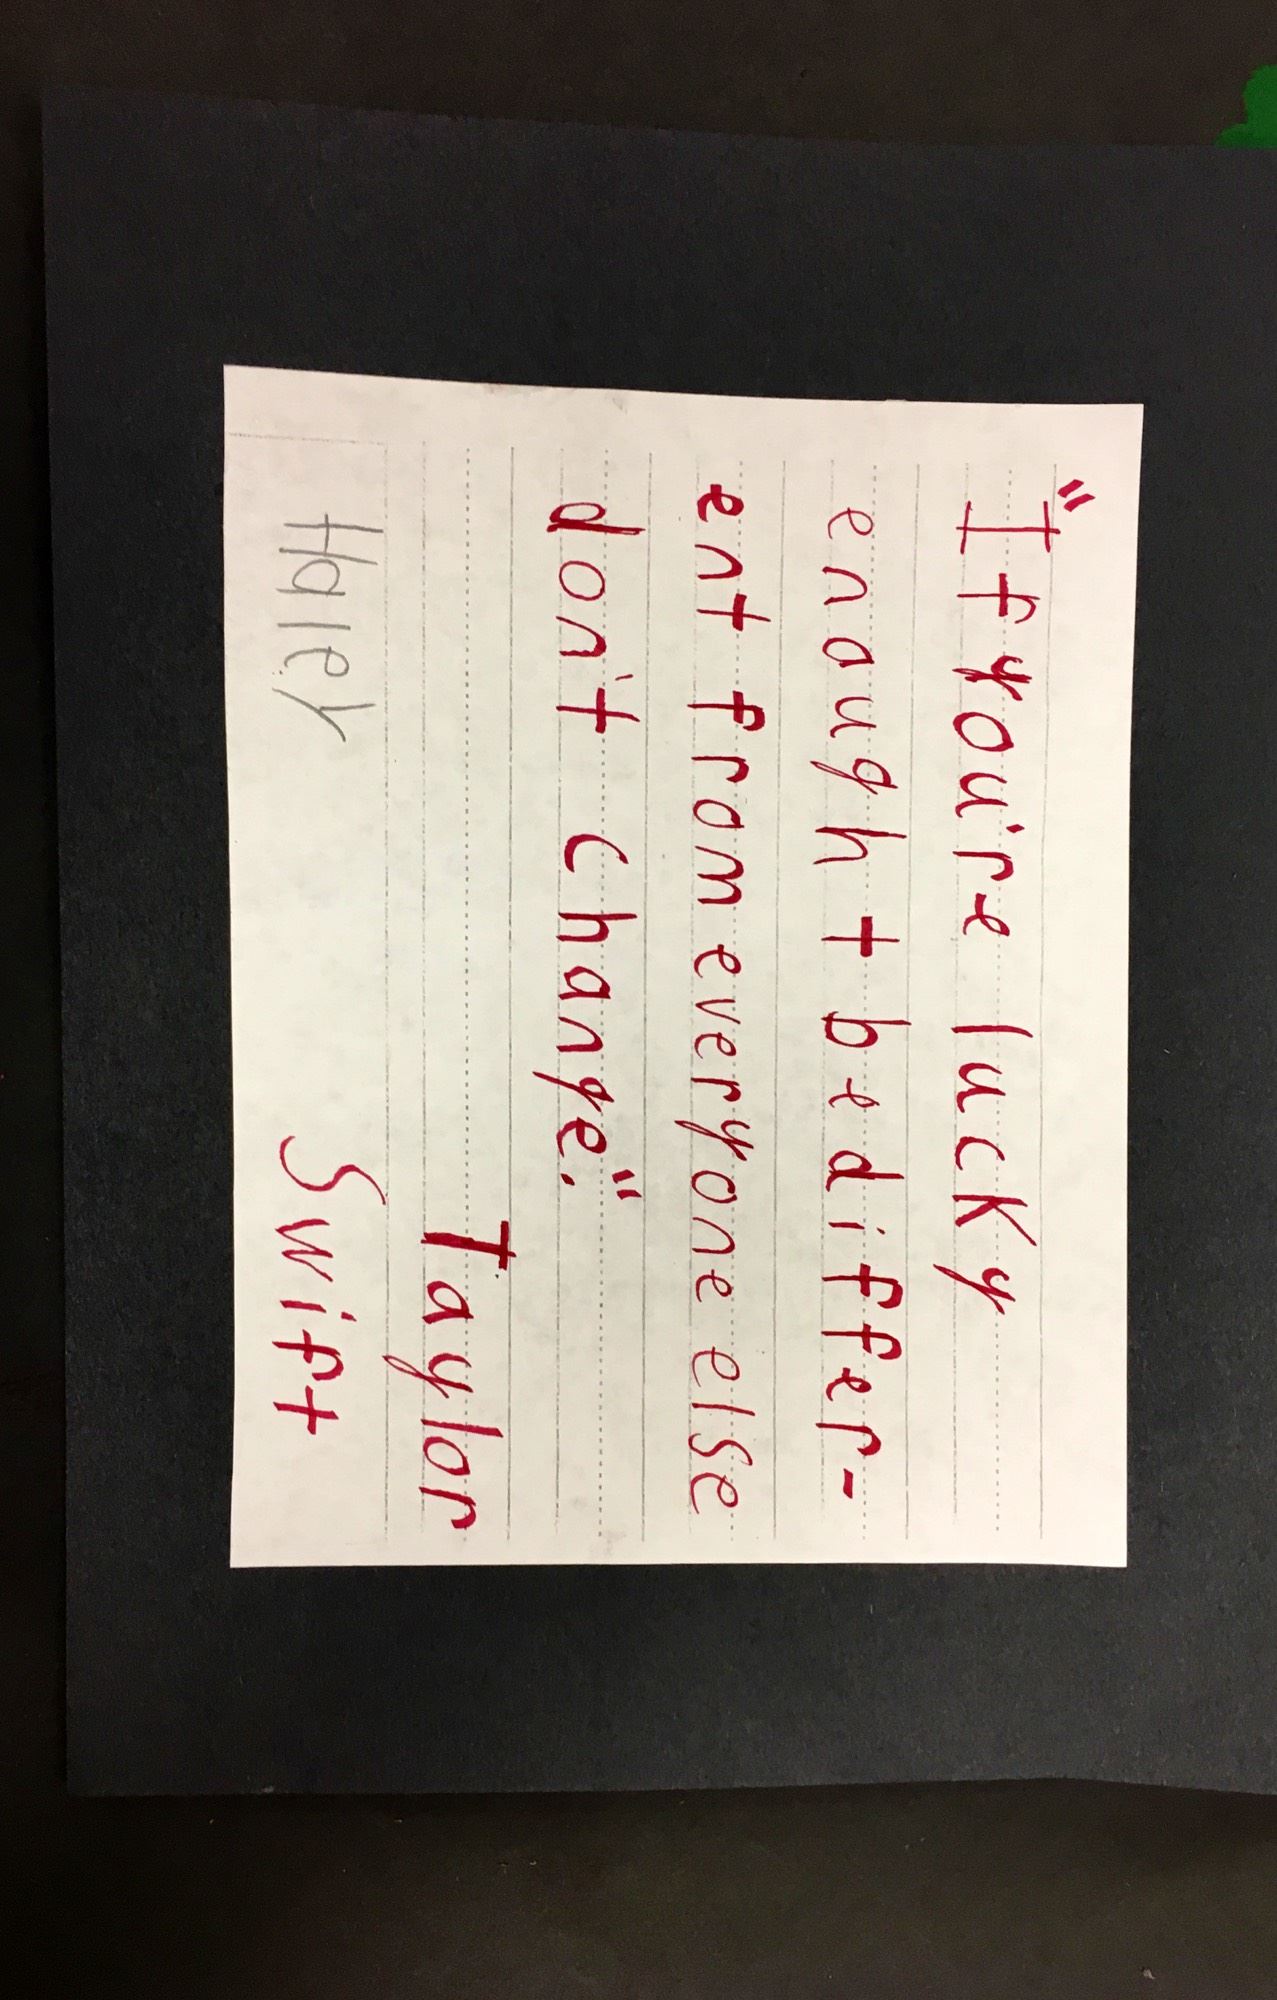 "If you're lucky
enough t be differ-
ent from everyone else
don't change."
Taylor
Haley Swift